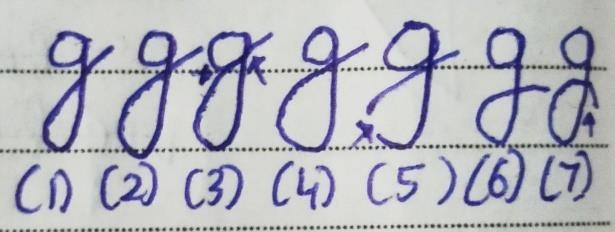 g g g g g g g
(1) (2) (3) (4) (5) (6) (7)